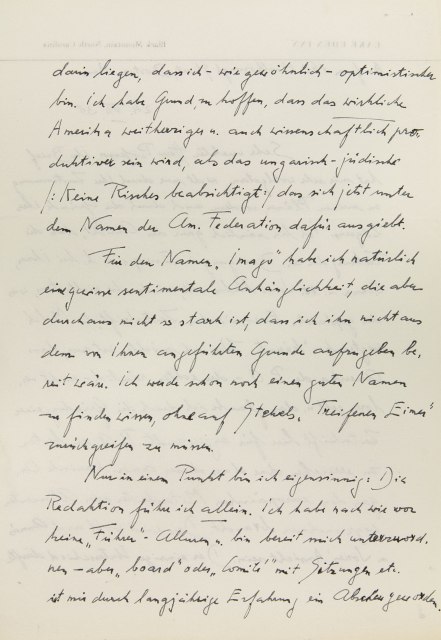 darin liegen, dass ich - wie gewöhnlich - optimistischer
bin. Ich habe Grund, zu hoffen, dass das wirkliche
Amerika weitherziger u. auch wissenschaftlich pro-
duktiver sein wird, als das ungarisch-jüdische
/:Keine Risches beabsichtigt:/ das sich jetzt unter
dem Namen der Am. Federation dafür ausgiebt.
Für den Namen „Imago" habe ich natürlich
eine gewisse sentimentale Anhänglichkeit, die aber
durchaus nicht so stark ist, dass ich ihn nicht aus
dem von Ihnen angeführten Grunde aufzugeben be-
reit wäre. Ich werde schon noch einen guten Namen
zu finden wissen, ohne auf Stekels „Treifenen Eimer"
zurückgreifen zu müssen.
Nur in einem Punkt bin ich eigensinnig: Die
Redaktion führe ich allein. Ich habe nach wie vor
keine „Führer"-Alluren u. bin bereit mich unterzuord-
nen - aber „board" oder „Comité" mit Sitzungen etc.
ist mir durch langjährige Erfahrung ein Abscheu geworden.